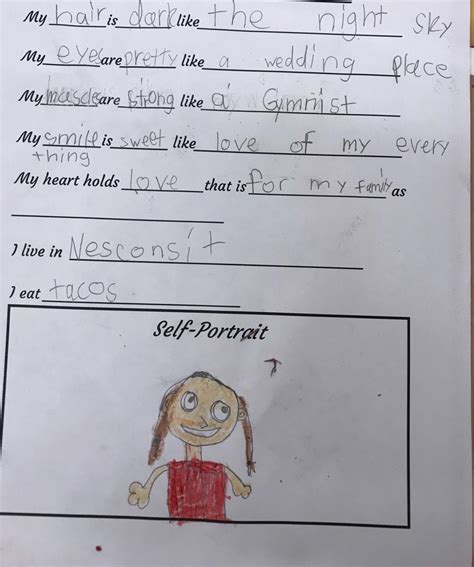 My hair is dark like the night sky
My eye are pretty like a wedding place
My muscle are strong like a Gymnist
My smile is sweet like love of my every
thing
My heart holds love that is for my family as
I live in Nesconsit
I eat tacos
Self-Portrait